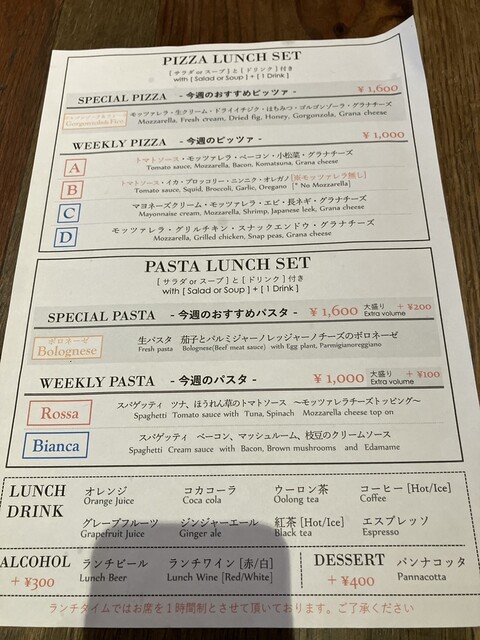 PIZZA LUNCH SET
[ サラダ or スープ ] と [ ドリンク ] 付き
with [ Salad or Soup ] + [ 1 Drink ]
SPECIAL PIZZA - 今週のおすすめピッツァ - ¥ 1,600
モッツァレラ・生クリーム・ドライイチジク・はちみつ・ゴルゴンゾーラ・グラナチーズ
Mozzarella, Fresh cream, Dried fig, Honey, Gorgonzola, Grana cheese
WEEKLY PIZZA - 今週のピッツァ - ¥ 1,000
A トマトソース・モッツァレラ・ベーコン・小松菜・グラナチーズ
Tomato sauce, Mozzarella, Bacon, Komatsuna, Grana cheese
B トマトソース・イカ・ブロッコリー・ニンニク・オレガノ [※モッツァレラ無し]
Tomato sauce, Squid, Broccoli, Garlic, Oregano [* No Mozzarella]
C マヨネーズクリーム・モッツァレラ・エビ・長ネギ・グラナチーズ
Mayonnaise cream, Mozzarella, Shrimp, Japanese leek, Grana cheese
D モッツァレラ・グリルチキン・スナックエンドウ・グラナチーズ
Mozzarella, Grilled chicken, Snap peas, Grana cheese
PASTA LUNCH SET
[ サラダ or スープ ] と [ ドリンク ] 付き
with [ Salad or Soup ] + [ 1 Drink ]
SPECIAL PASTA - 今週のおすすめパスタ - ¥ 1,600 大盛り Extra volume + ¥200
ボロネーゼ
Bolognese
生パスタ 茄子とパルミジャーノレッジャーノチーズのボロネーゼ
Fresh pasta Bolognese(Beef meat sauce) with Egg plant, Parmigianoreggiano
WEEKLY PASTA - 今週のパスタ - ¥ 1,000 大盛り Extra volume + ¥100
Rossa スパゲッティ ツナ、ほうれん草のトマトソース ～モッツァレラチーズトッピング～
Spaghetti Tomato sauce with Tuna, Spinach Mozzarella cheese top on
Bianca スパゲッティ ベーコン、マッシュルーム、枝豆のクリームソース
Spaghetti Cream sauce with Bacon, Brown mushrooms and Edamame
LUNCH DRINK
オレンジ コカコーラ ウーロン茶 コーヒー [Hot/Ice]
Orange Juice Coca cola Oolong tea Coffee
グレープフルーツ ジンジャーエール 紅茶 [Hot/Ice] エスプレッソ
Grapefruit Juice Ginger ale Black tea Espresso
ALCOHOL + ¥300
ランチビール ランチワイン [赤/白]
Lunch Beer Lunch Wine [Red/White]
DESSERT + ¥400
パンナコッタ
Pannacotta
ランチタイムではお席を１時間制とさせて頂いております。ご了承ください